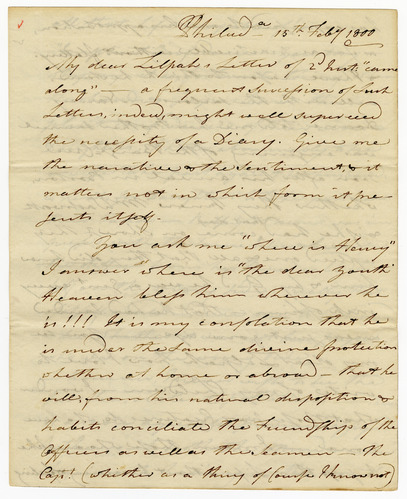 Philad.a 15th Feby 1800
My dear Lilpah's Letter of 2d Inst. "came
along" — a frequent succession of such
Letters, indeed, might well supersede
the necessity of a Diary. Give me
the narrative & the Sentiment, & it
matters not in which form it pre-
sents itself.
You ask me "where is Henry"
I answer "where is" the dear youth
Heaven bless him wherever he
is!!! It is my consolation that he
is under the same divine protection
whether at home or abroad — that he
will, from his natural disposition &
habits conciliate the Friendship of the
Officers as well as the Seamen — The
Capt. (whether as a thing of Course I know not)